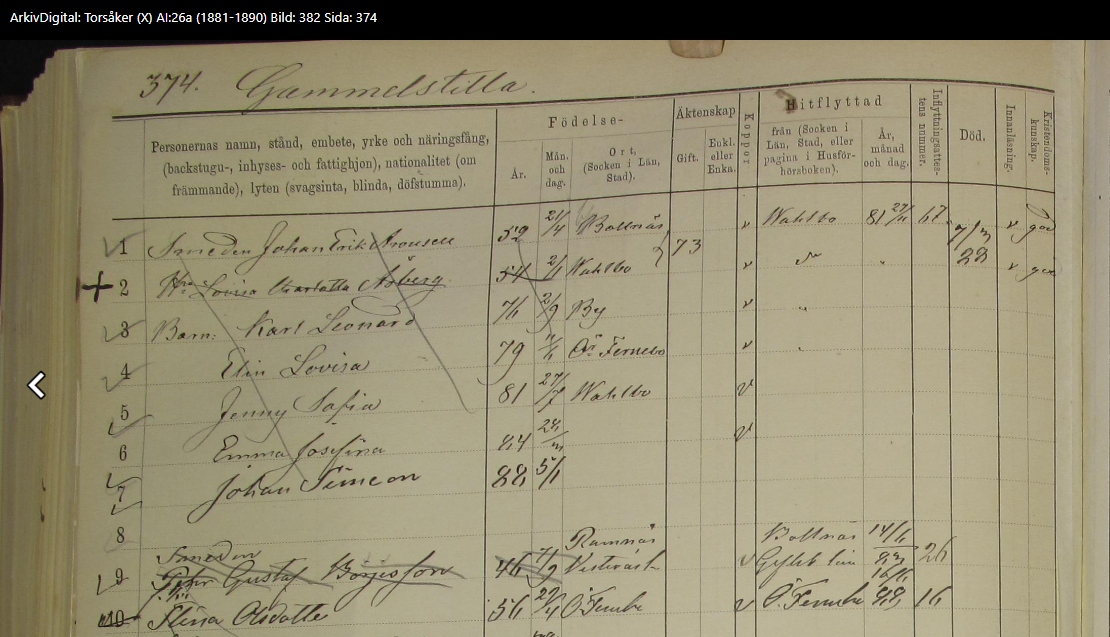 ArkivDigital: Torsåker (X) AI:26a (1881-1890) Bild: 382 Sida: 374
374. Gammelstilla.
Personernas namn, stånd, embete, yrke och näringsfång, (backstugu-, inhyses- och fattighjon), nationalitet (om främmande), lyten (svagsinta, blinda, döfstumma).
Födelse-
År.
Mån. och dag.
Ort, (Socken i Län, Stad).
Äktenskap
Gift.
Enkl. eller Enka.
Koppor
Hitflyttad
från (Socken i Län, Stad, eller pagina i Husförhörsboken).
År, månad och dag.
Inflyttningsattestens nummer.
Död.
Innanläsning.
Kristendomskunskap.
1 Smeden Johan Erik 52 21/4 Bollnäs 73 v Wahlbo 81 67 v god
2 Hu Lovisa Charlotta Åsberg 54 Wahlbo v v
3 Barn: Karl Leonard 76 2/9 By v
4 Elin Lovisa 79 Ö Fernebo v
5 Jenny Sofia 81 27/7 Wahlbo v
6 Emma Josefina 84 v
7 Johan Simeon 88 5/1
8 Ramnäs Bollnäs 14/11
9 Smeden Gustaf Börjesson 46 7/9 Vesterås v Gefleb län 26
10 Stina Olsdotter 56 v Ö. 88 16